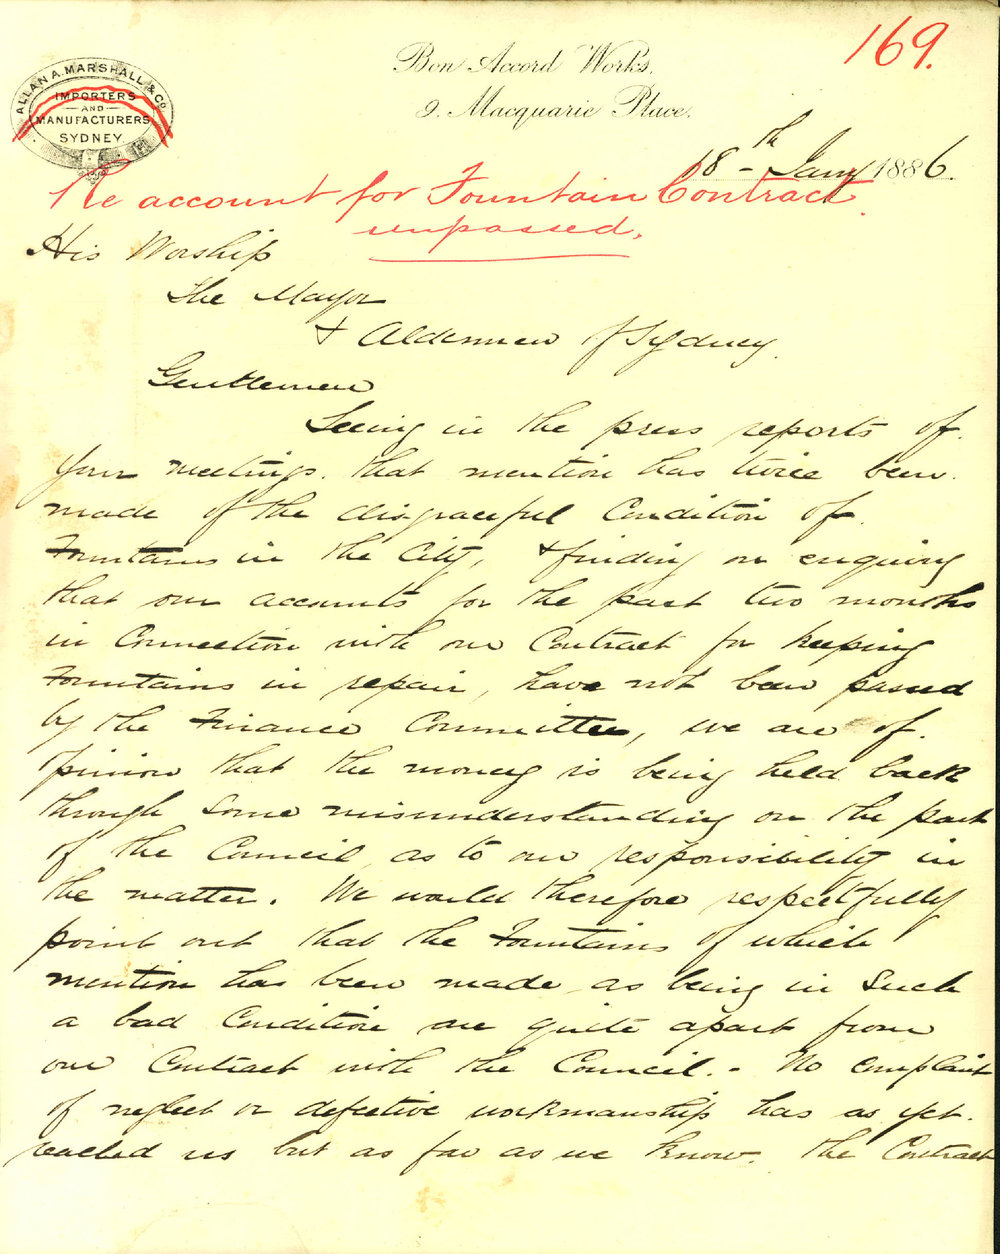 169.
ALLAN A. MARSHALL & Co.
IMPORTERS
AND
MANUFACTURERS
SYDNEY
Bon Accord Works,
9. Macquarie Place.
18 - th Jany 1886.
Re account for Fountain Contract
unpassed.
His Worship
The Mayor
& Aldermen of Sydney.
Gentlemen
Seeing in the press reports of
your meetings. that mention has twice been
made of the disgraceful Condition of
Fountains in the City, & finding on enquiry
that our accounts for the past two months
in Connection with our Contract for keeping
Fountains in repair, have not been passed
by the Finance Committee, we are of
opinion that the money is being held back
through some misunderstanding on the part
of the Council as to our responsibility in
the matter. We would therefore respectfully
point out that the Fountains of which
mention has been made as being in Such
a bad Condition are quite apart from
our Contract with the Council. - No complaint
of neglect or defective workmanship has as yet
reached us but as far as we know. the Contract